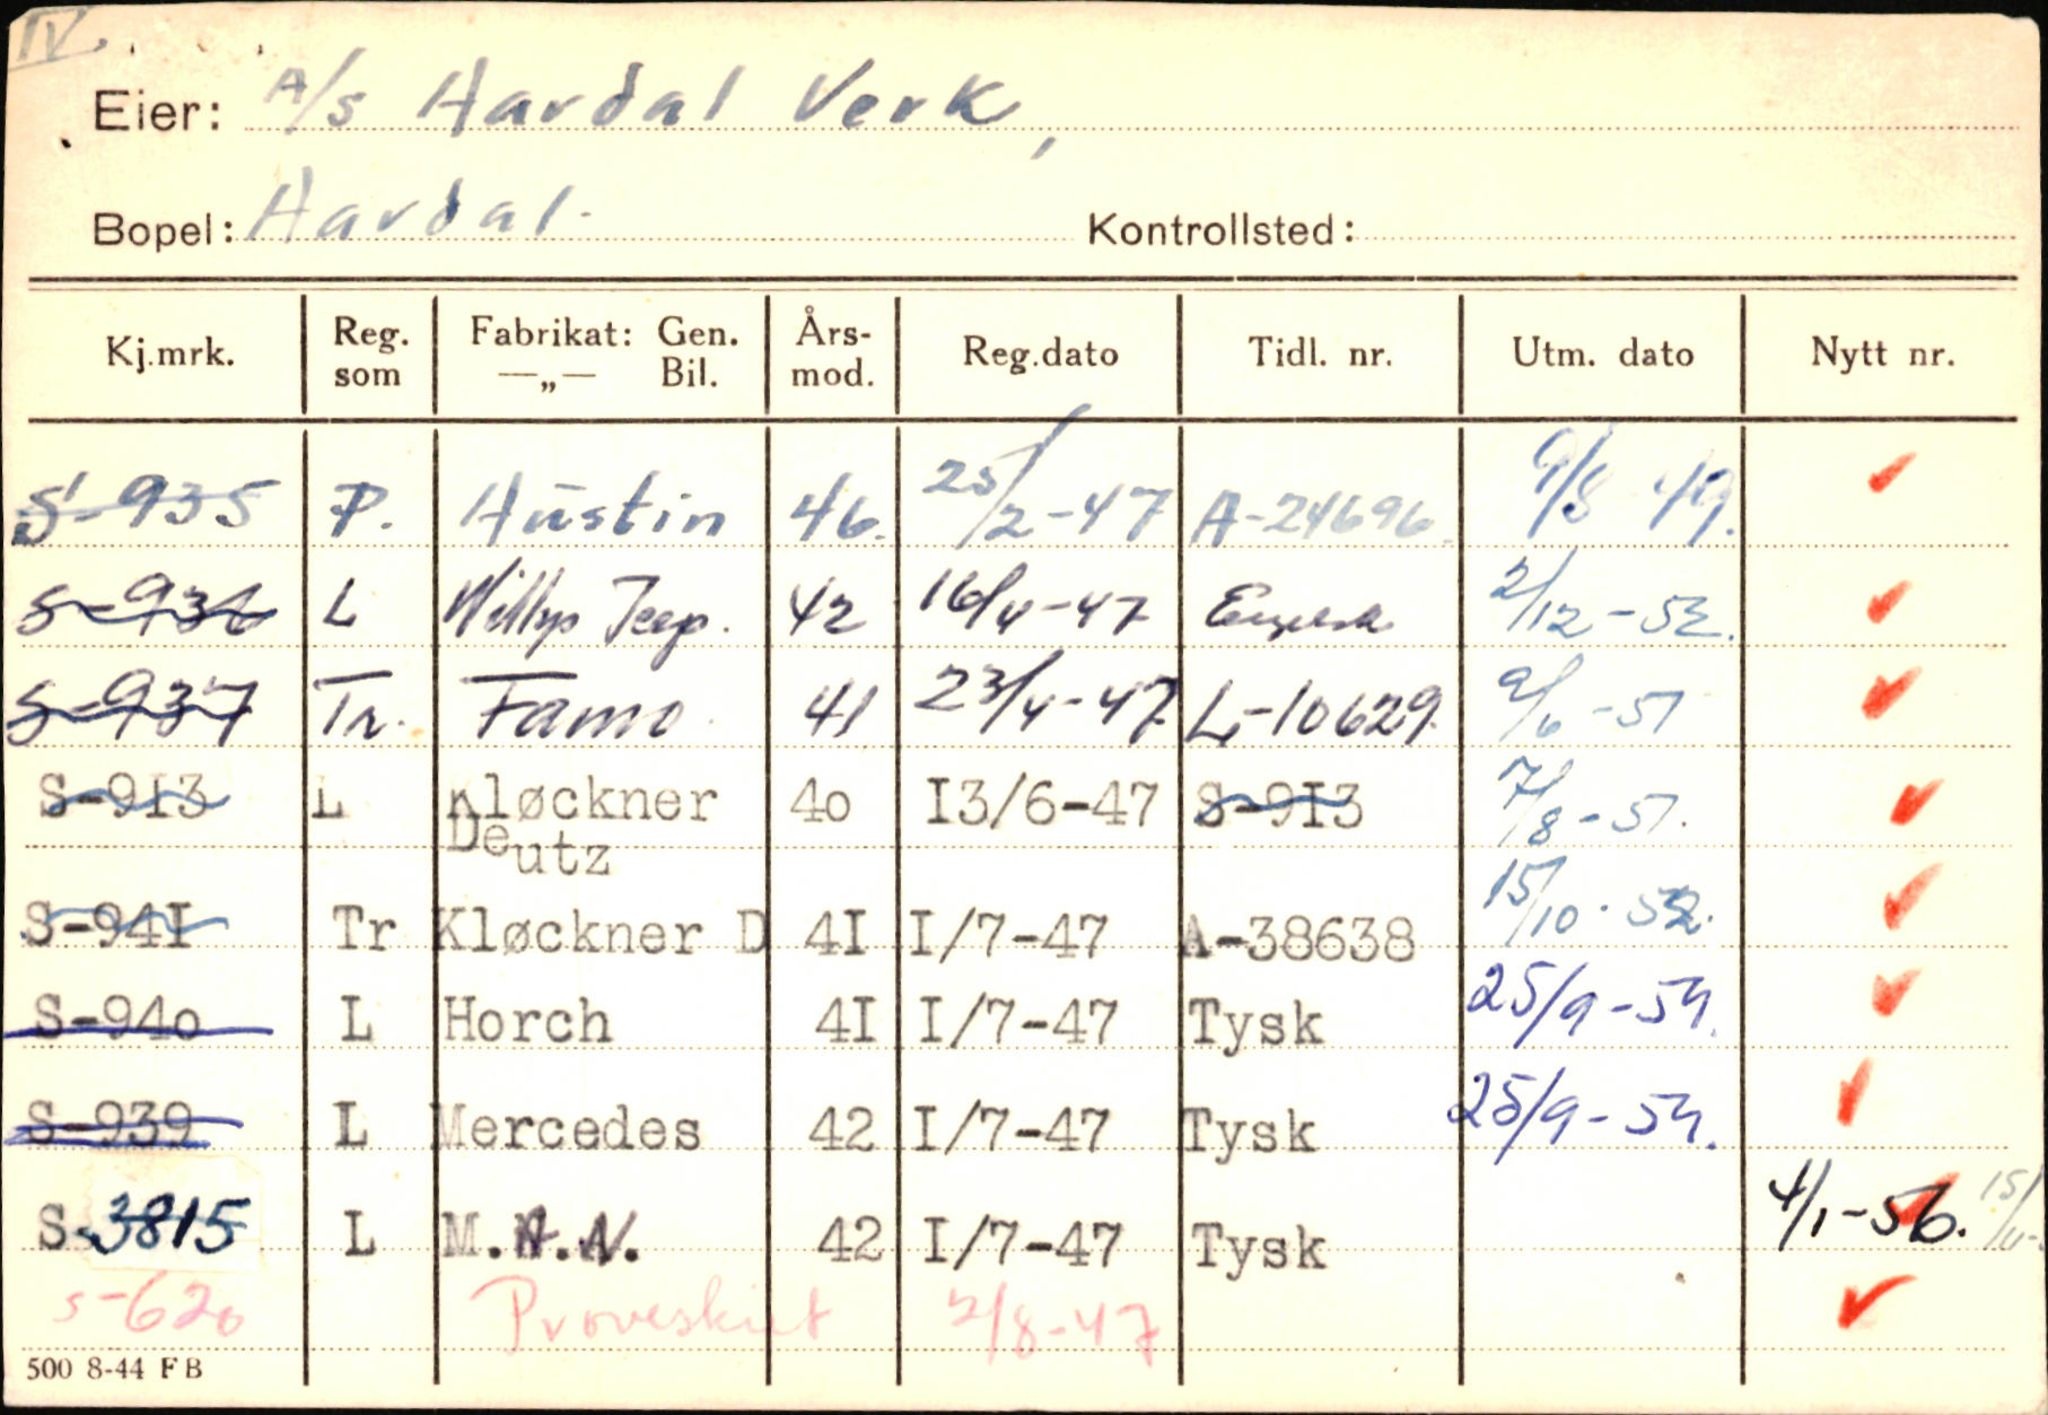 IV.
Eier: A/s Aardal Verk,
Bopel: Aardal. Kontrollsted:
Kj.mrk. Reg. som Fabrikat: Gen. —„— Bil. Års-mod. Reg.dato Tidl. nr. Utm. dato Nytt nr.
S-935 P. Austin 46. 25/2-47 A-24696. 9/8 49.
S-936 L Willys Jeep. 42 16/4-47 Engelsk 2/12-52.
S-937 Tr. Famo. 41 23/4-47 L-10629. 9/6-51
S-9I3 L Kløckner 4o I3/6-47 S-9I3 7/8-51.
Deutz
S-94I Tr Kløckner D 4I I/7-47 A-38638 15/10.52.
S-94o L Horch 4I I/7-47 Tysk 25/9-54.
S-939 L Mercedes 42 I/7-47 Tysk 25/9-54.
S-3815 L M.A.N. 42 I/7-47 Tysk 4/1-56. 15/11-
S-620 Prøveskilt 2/8-47
500 8-44 FB